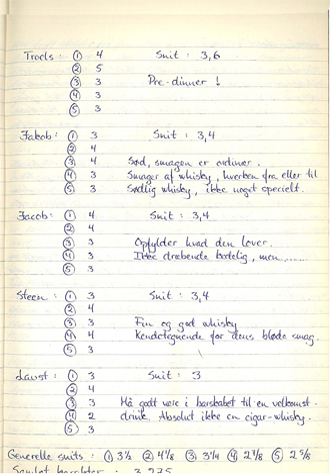 Troels: ① 4 Snit: 3,6
② 5
③ 3 Pre-dinner!
④ 3
⑤ 3
Jakob: ① 3 Snit: 3,4
② 4
③ 4 Sød, smagen er ordinær.
④ 3 Smager af whisky, hverken fra eller til
⑤ 3 Sødlig whisky, ikke noget specielt.
Jacob: ① 4 Snit: 3,4
② 4
③ 3 Opfylder hvad den lover.
④ 3 Ikke dræbende kedelig, men........
⑤ 3
Steen: ① 3 Snit: 3,4
② 4
③ 3 Fin og god whisky
④ 4 Kendetegnende for dens bløde smag.
⑤ 3
Laust: ① 3 Snit: 3
② 4
③ 3 Må godt være i barskabet til en velkomst-
④ 2 drink. Absolut ikke en cigar-whisky.
⑤ 3
Generelle snits: ① 3½ ② 4⅛ ③ 3¼ ④ 2⅞ ⑤ 2⅝
Samlet karakter: 3,275